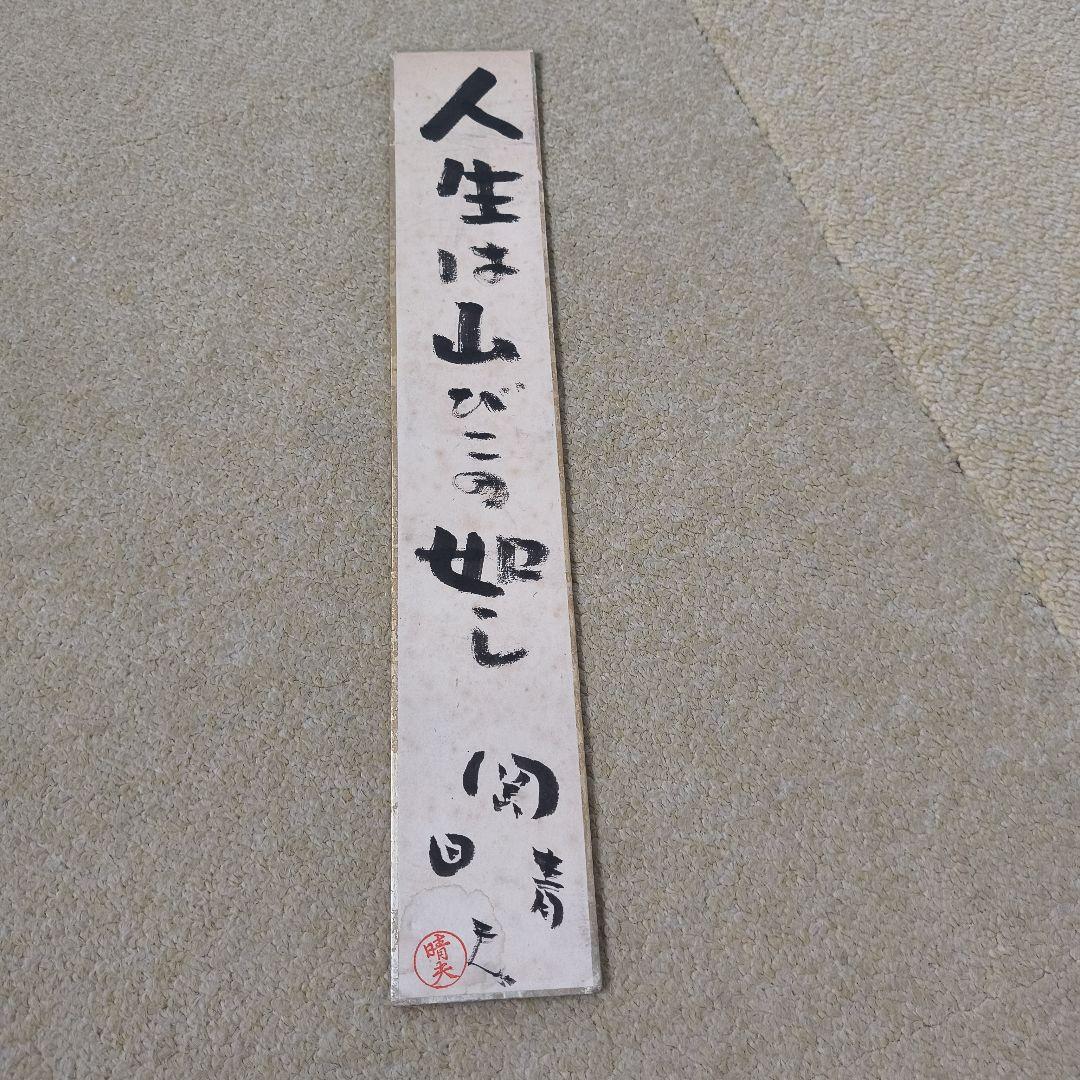 人生は山びこの如し
関晴夫
晴夫